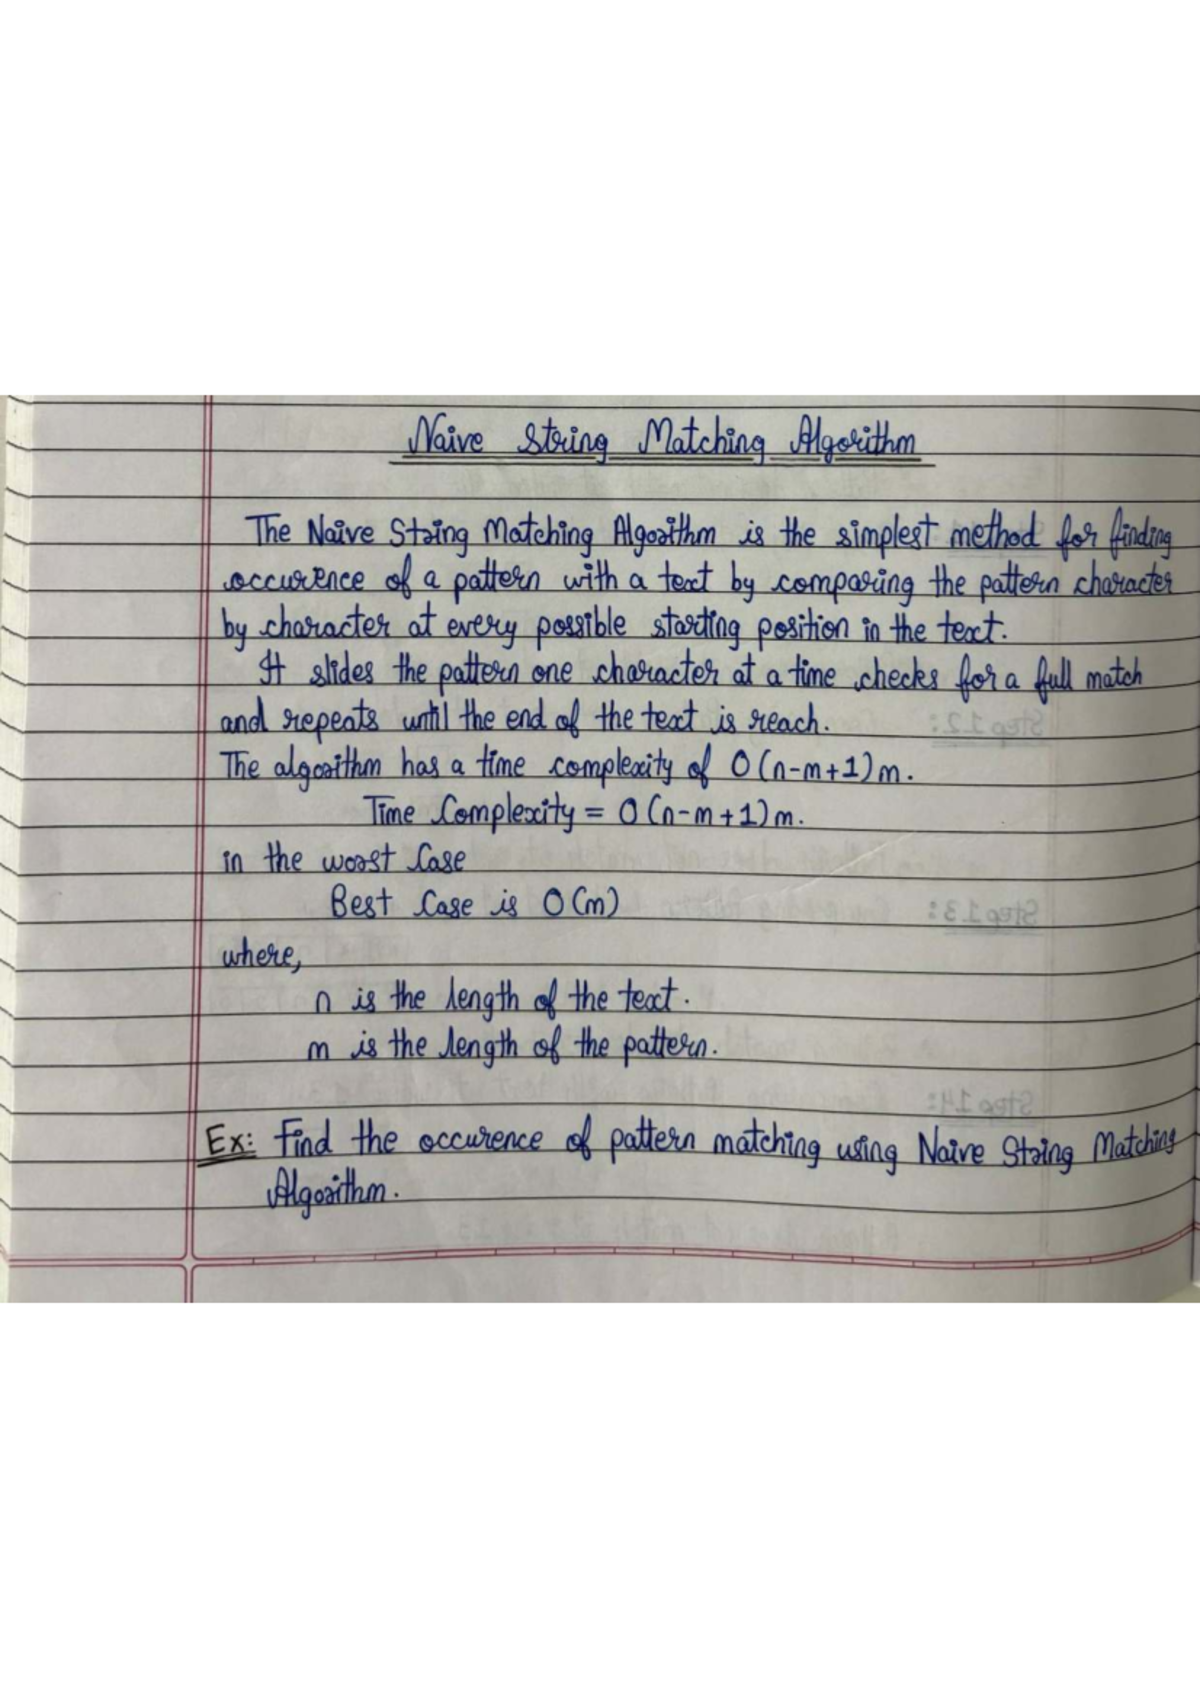 Naive String Matching Algorithm
The Naive String Matching Algorithm is the simplest method for finding
occurence of a pattern with a text by comparing the pattern character
by character at every possible starting position in the text.
It slides the pattern one character at a time checks for a full match
and repeats until the end of the text is reach.
The algorithm has a time complexity of O(n-m+1)m.
Time Complexity = O(n-m+1)m.
in the worst Case
Best Case is O(m)
where,
n is the length of the text.
m is the length of the pattern.
Ex: Find the occurence of pattern matching using Naive String Matching
Algorithm.